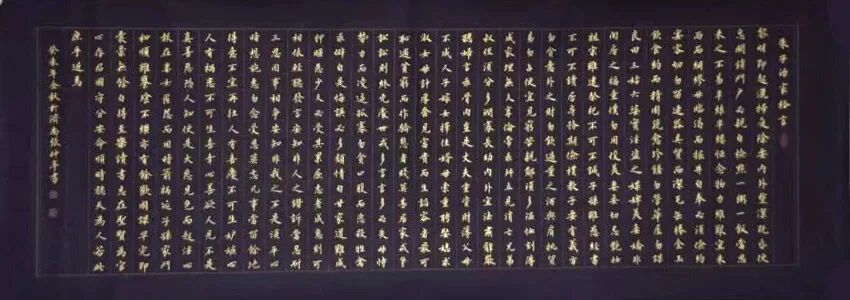 朱子治家格言
黎明即起灑掃庭除要內外整潔既昏便
息關鎖門戶必親自檢點一粥一飯當思
來之不易半絲半縷恆念物力維艱宜未
雨而綢繆毋臨渴而掘井自奉必須儉約
宴客切勿留連器具質而潔瓦缶勝金玉
飲食約而精園蔬愈珍饈勿營華屋勿謀
良田三姑六婆實淫盜之媒婢美妾嬌非
閨房之福童僕勿用俊美妻妾切忌艷妝
祖宗雖遠祭祀不可不誠子孫雖愚經書
不可不讀居身務期儉樸教子要有義方
勿貪意外之財勿飲過量之酒與肩挑貿
易勿佔便宜見窮苦親鄰須多溫恤刻薄
成家理無久享倫常乖舛立見消亡兄弟
叔侄須分多潤寡長幼內外宜法肅辭嚴
聽婦言乖骨肉豈是丈夫重資財薄父母
不成人子嫁女擇佳婿毋索重聘娶媳求
淑女毋計厚奩見富貴而生諂容者最可
恥遇貧窮而作驕態者賤莫甚居家戒爭
訟訟則終凶處世戒多言言多必失毋恃
勢力而凌逼孤寡勿貪口腹而恣殺牲禽
乖僻自是悔誤必多頹惰自甘家道難成
狎暱惡少久必受其累屈志老成急則可
相依輕聽發言安知非人之譖訴當忍耐
三思因事相爭焉知非我之不是須平心
暗想施惠勿念受恩莫忘凡事當留餘地
得意不宜再往人有喜慶不可生妒嫉心
人有禍患不可生喜幸心善欲人見不是
真善惡恐人知便是大惡見色而起淫心
報在妻女匿怨而用暗箭禍延子孫家門
和順雖饔飧不繼亦有餘歡國課早完即
囊橐無餘自得至樂讀書志在聖賢為官
心存君國守分安命順時聽天為人若此
庶乎近焉
癸未年金秋於濟南張仲亭書